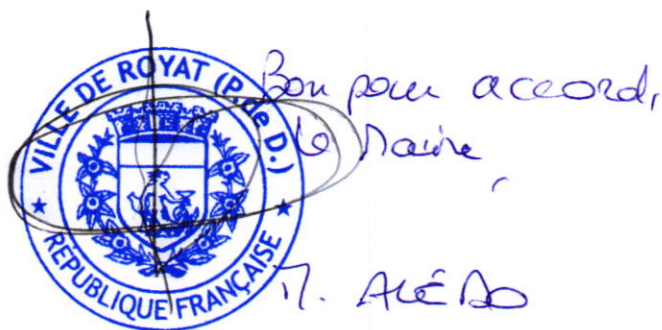 VILLE DE ROYAT (P. de D.)
RÉPUBLIQUE FRANÇAISE
Bon pour accord,
le Maire,
M. ALÉDO